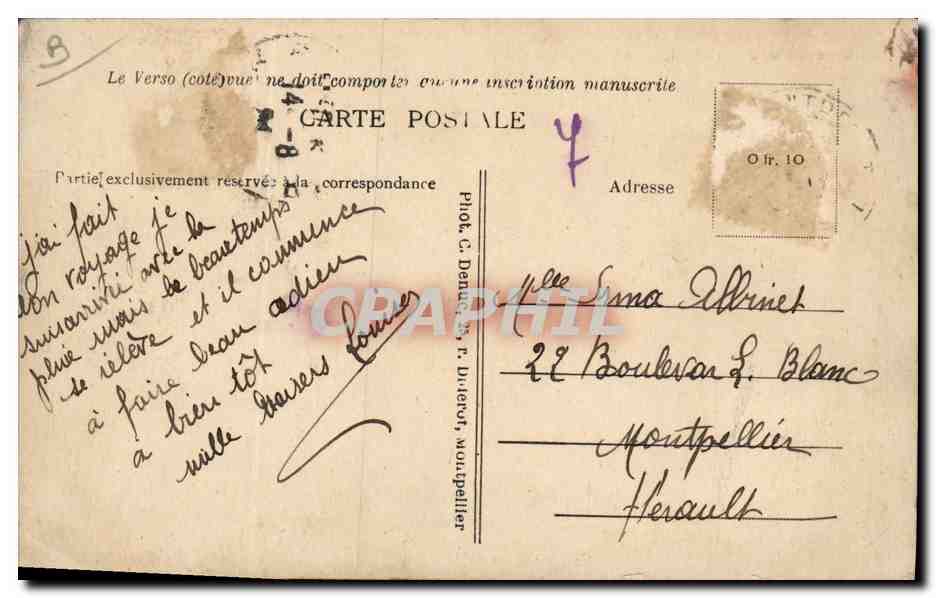 B
Le Verso (côté vue) ne doit comporter aucune inscription manuscrite
14 -8
CARTE POSTALE
7
0 fr. 10
Partie exclusivement réservée à la correspondance
Adresse
j'ai fait
bon voyage je
suis arrivé avec la
pluie mais le beau temps
se relève et il commence
à faire beau adieu
à bien tôt
mille baisers Louise
Phot. C. Denuc, 25, r. Diderot, Montpellier
CRAPHIL
Mlle Irma Albinet
22 Boulevar L. Blanc
Montpellier
Hérault